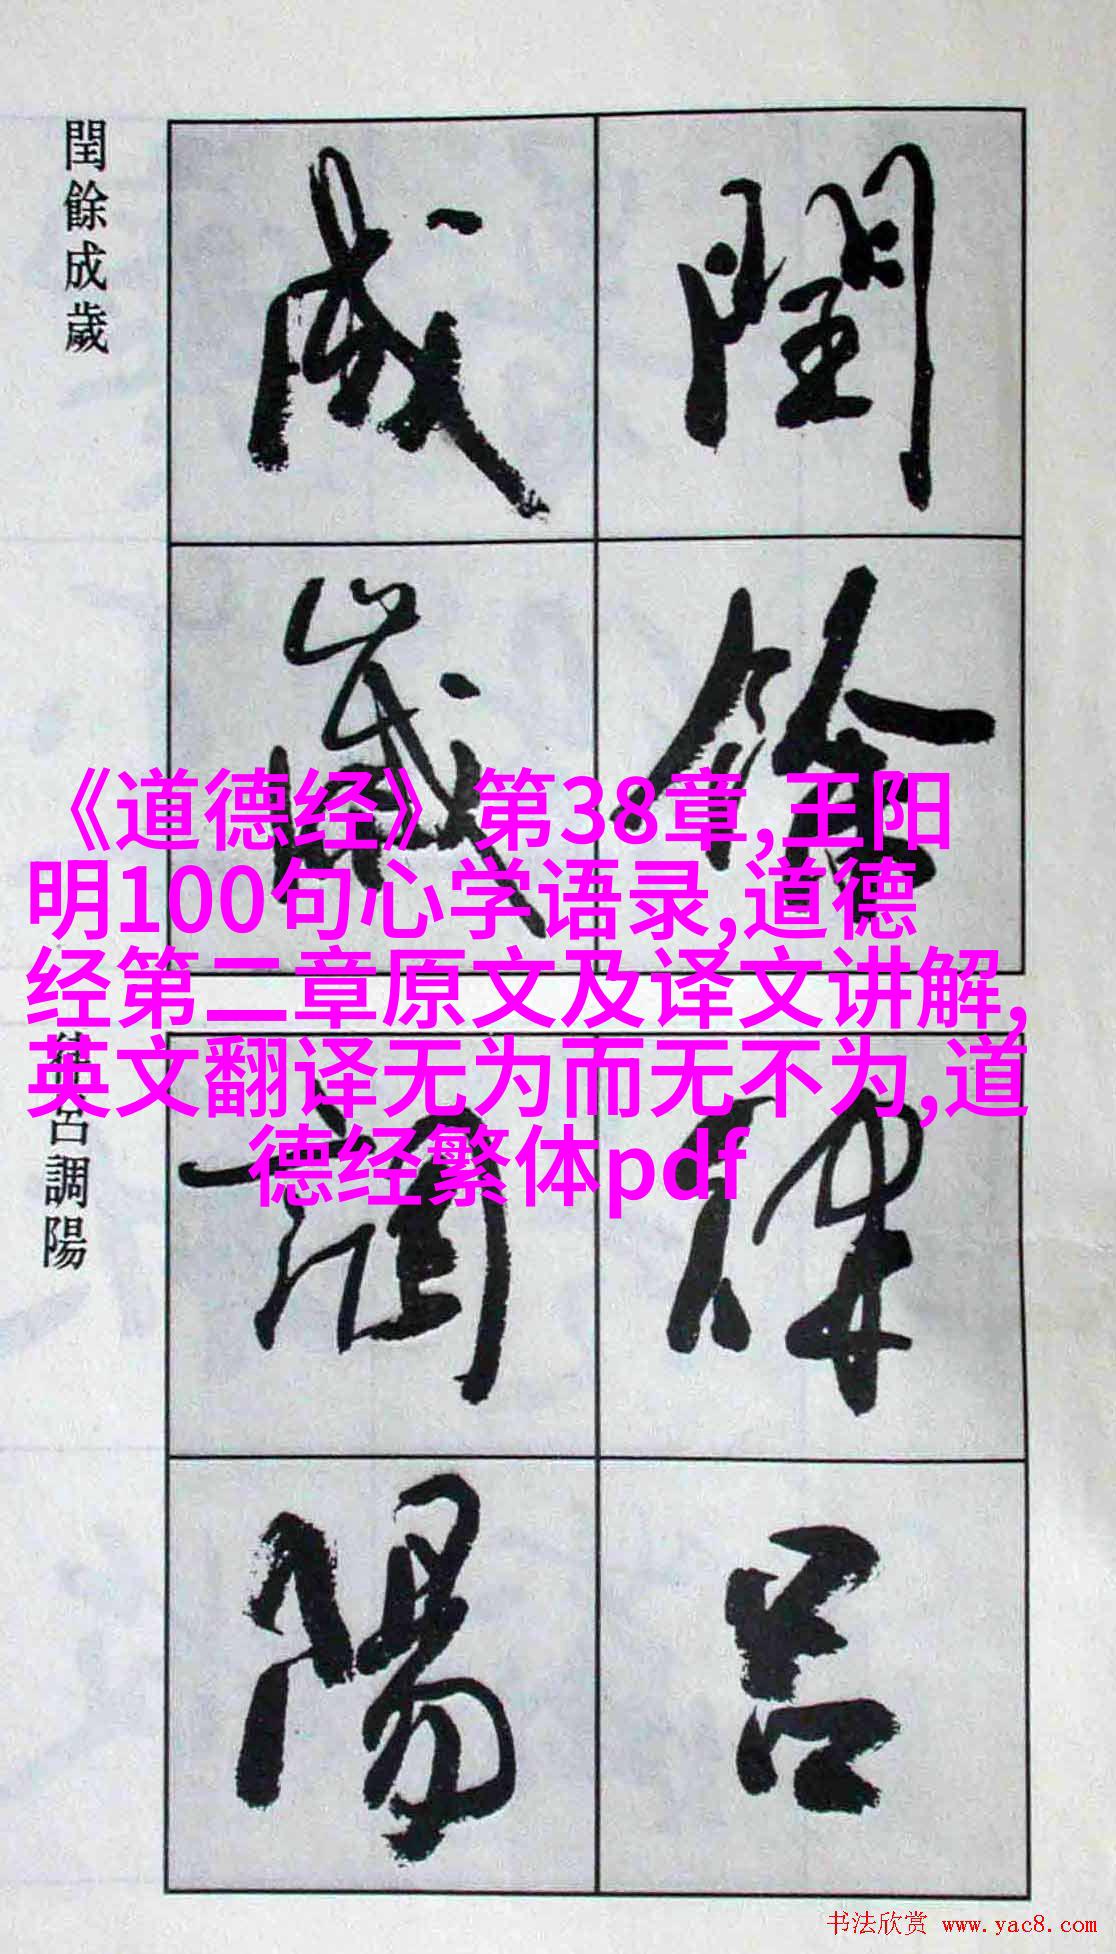 閏餘成歲
閏餘
成歲
《道德经》第38章,王阳
明100句心学语录,道德
经第二章原文及译文讲解,
英文翻译无为而无不为,道
德经繁体pdf
呂調陽
律呂
調陽
书法欣赏 www.yac8.com